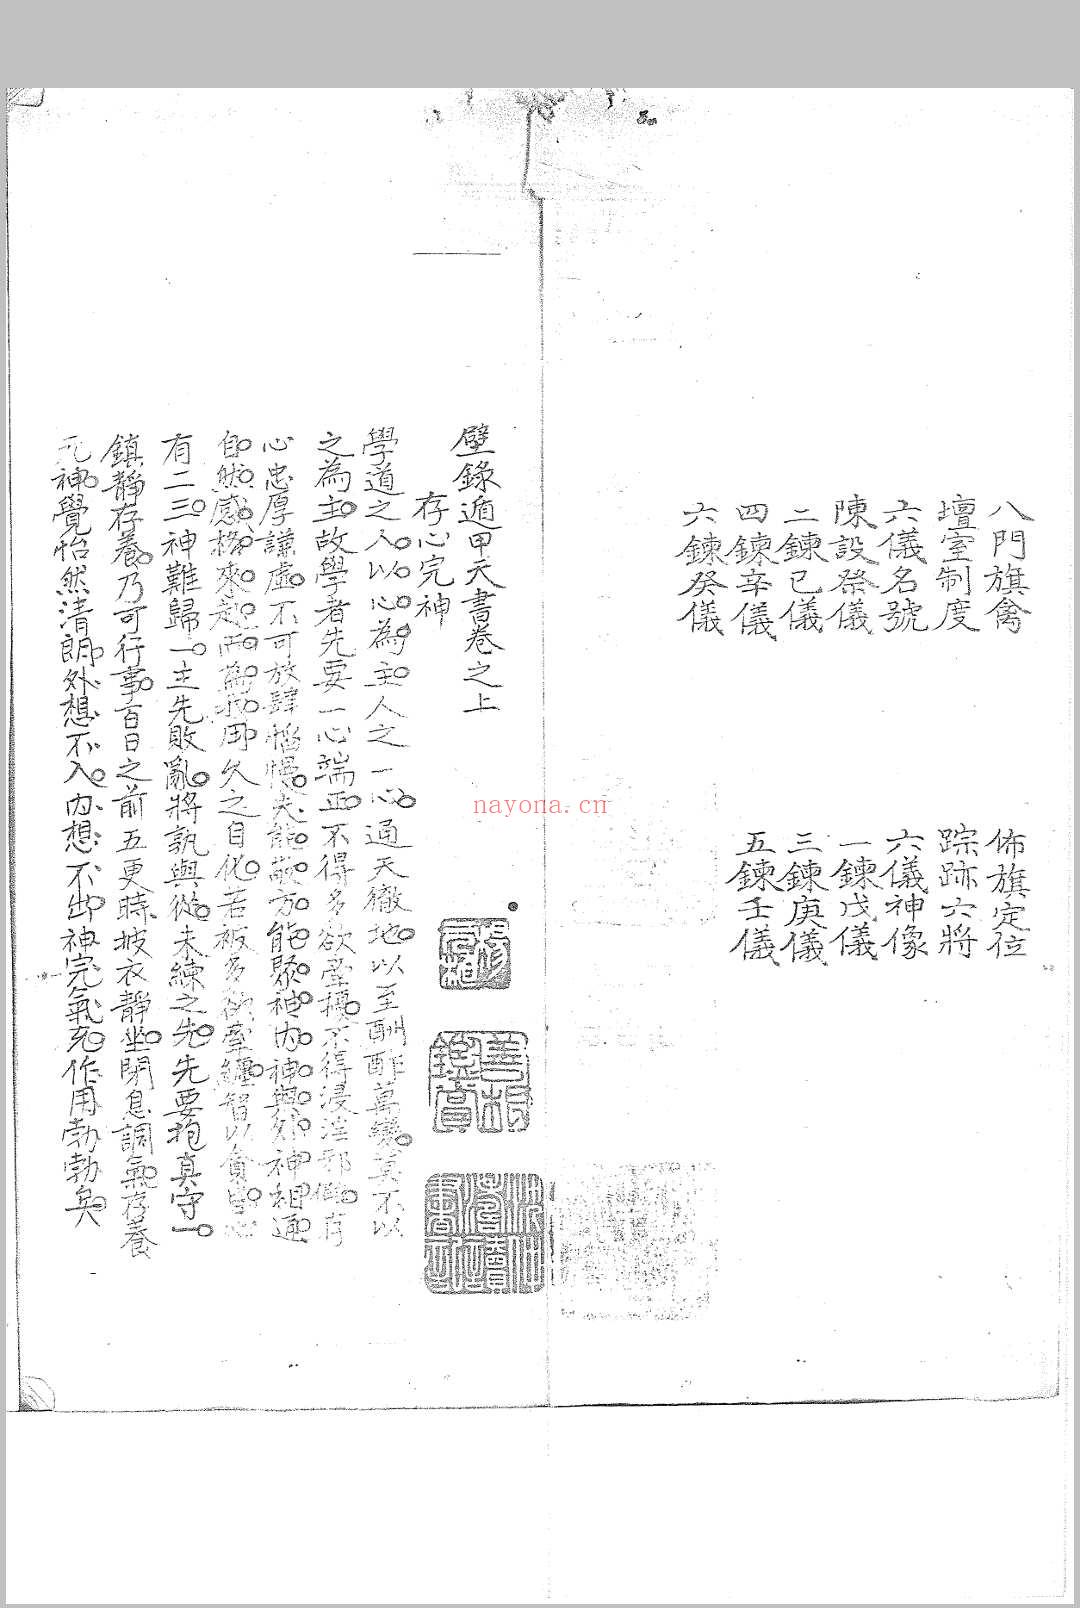 八門旗禽　佈旗定位
壇室制度　踪跡六將
六儀名號　六儀神像
陳設祭儀　一鍊戊儀
二鍊己儀　三鍊庚儀
四鍊辛儀　五鍊壬儀
六鍊癸儀
壁錄遁甲天書卷之上
存心完神
學道之人以心為主人之一心通天徹地以至酬酢萬變莫不以
之為主故學者先要一心端正不得多欲牽擾不得浸淫邪僻存
心忠厚謙虛不可放肆惰慢夫能敬方能聚神內神與外神相通
自然感格來起而為我用久之自化若被多欲牽纏智以貪
有二三神難歸一主先敗亂將孰與從未鍊之先先要抱真守一
鎮靜存養乃可行事百日之前五更時披衣靜坐閉息調氣存養
元神覺怡然清朗外想不入內想不出神完氣充作用勃勃矣
nayona.cn